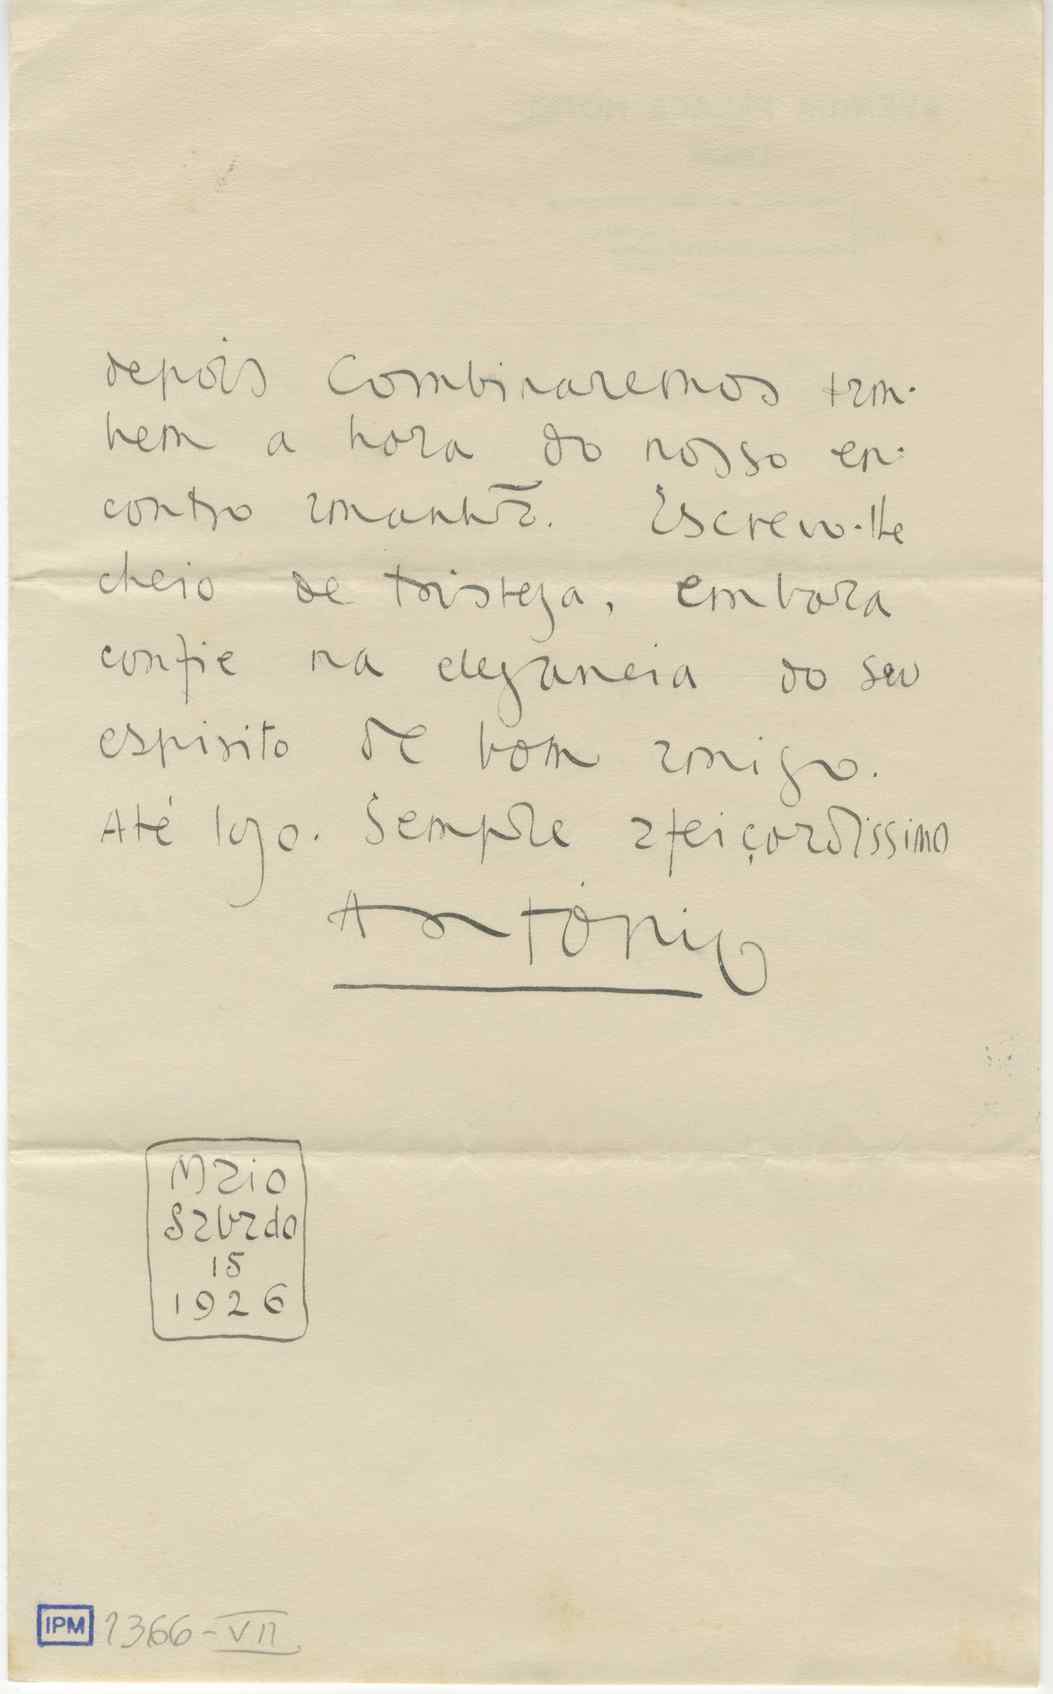 depois combinaremos tam-
bem a hora do nosso en-
contro amanhã. Escrevo-lhe
cheio de tristeza, embora
confie na elegancia do seu
espirito de bom amigo.
Até logo. Sempre afeiçoadissimo
António
Maio
Sabado
15
1926
IPM 1366-VII